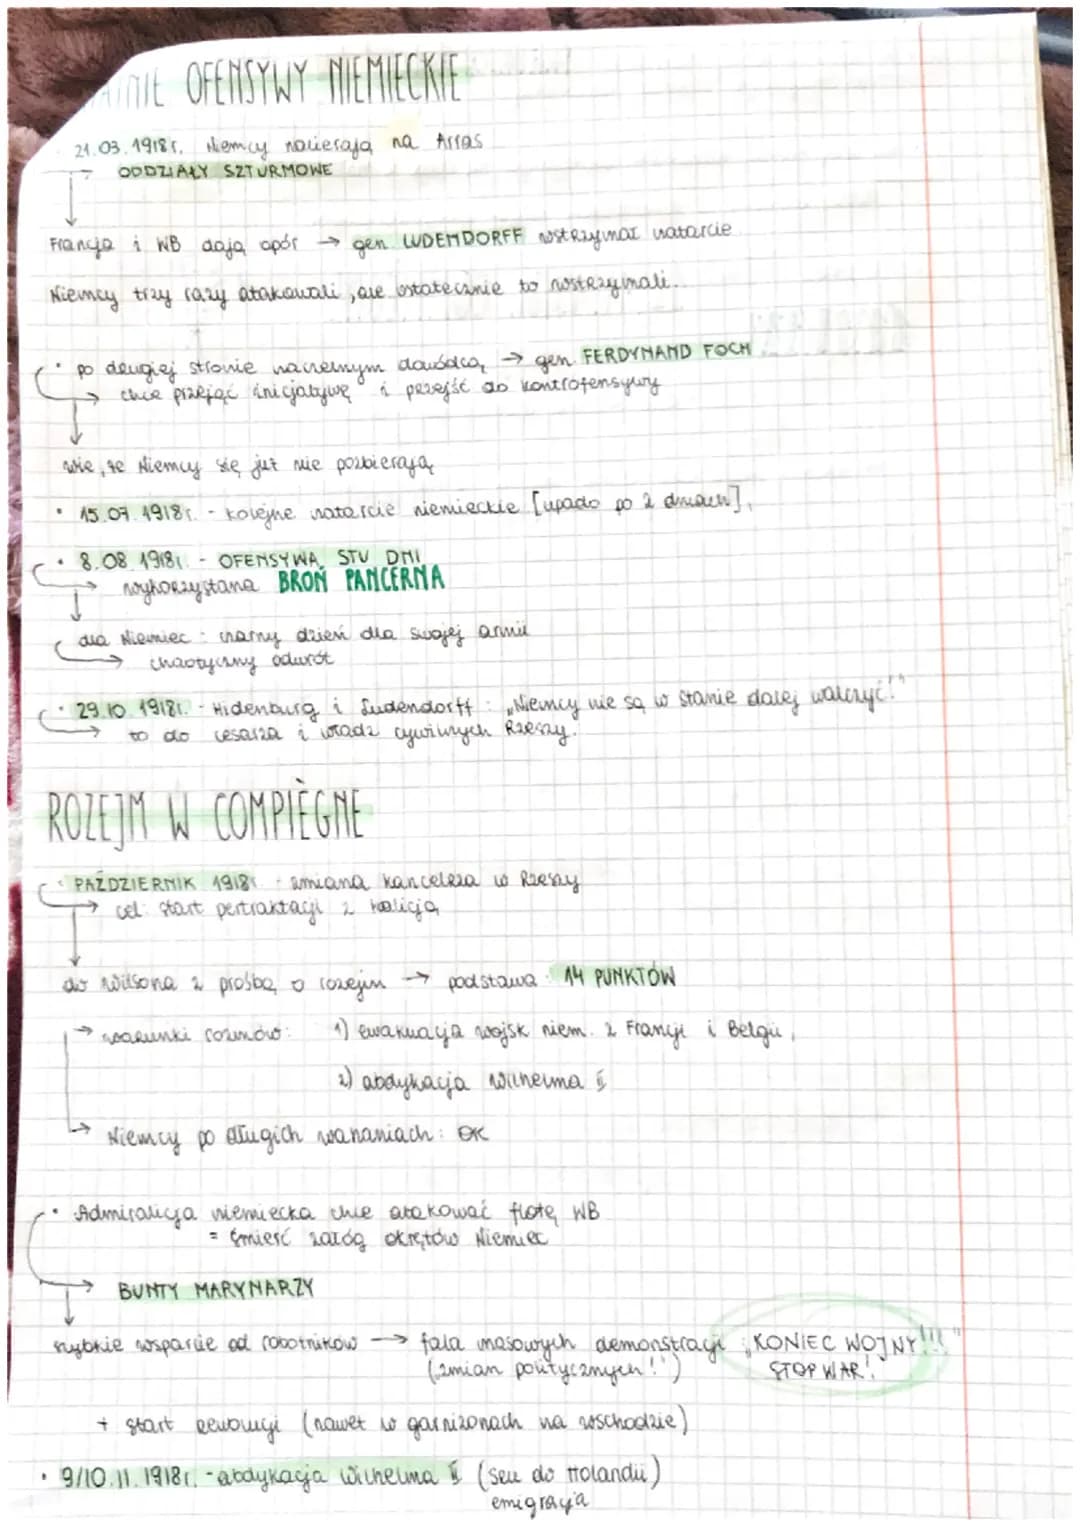 OFENSYWY NIEMIECKIE
21.03.1918r. Niemcy nacierają na Arras
→ ODDZIAŁY SZTURMOWE
Francja i WB dają opór → gen. LUDENDORFF wstrzymał natarcie
Niemcy trzy razy atakowali, ale ostatecznie to wstrzymali.
• po drugiej stronie naczelnym dowódcą → gen. FERDYNAND FOCH
→ chce przejąć inicjatywę i przejść do kontrofensywy
wie, że Niemcy się już nie pozbierają
• 15.07.1918r. - kolejne natarcie niemieckie [upado po 2 dniach]
• 8.08.1918r. - OFENSYWA STU DNI
→ wykorzystana BROŃ PANCERNA
dla Niemiec: czarny dzień dla swojej armii
→ chaotyczny odwrót
• 29.10.1918r. - Hidenburg i Ludendorff: „Niemcy nie są w stanie dalej walczyć!"
→ to do cesarza i władz cywilnych Rzeszy.
ROZEJM W COMPIÈGNE
• PAŹDZIERNIK 1918r. - zmiana kanclerza w Rzeszy
→ cel: start pertraktacji z koalicją
do Wilsona z prośbą o rozejm → podstawa: 14 PUNKTÓW
→ warunki rozmów: 1) ewakuacja wojsk niem. z Francji i Belgii,
2) abdykacja Wilhelma II
→ Niemcy po długich wahaniach: OK
• Admiralicja niemiecka chce atakować flotę WB
= śmierć załóg okrętów Niemiec
→ BUNTY MARYNARZY
szybkie wsparcie od robotników → fala masowych demonstracji „KONIEC WOJNY!!!"
("zmian politycznych!") STOP WAR!
+ start rewolucji (nawet w garnizonach na wschodzie)
• 9/10.11.1918r. - abdykacja Wilhelma II (seu do Holandii)
emigracja